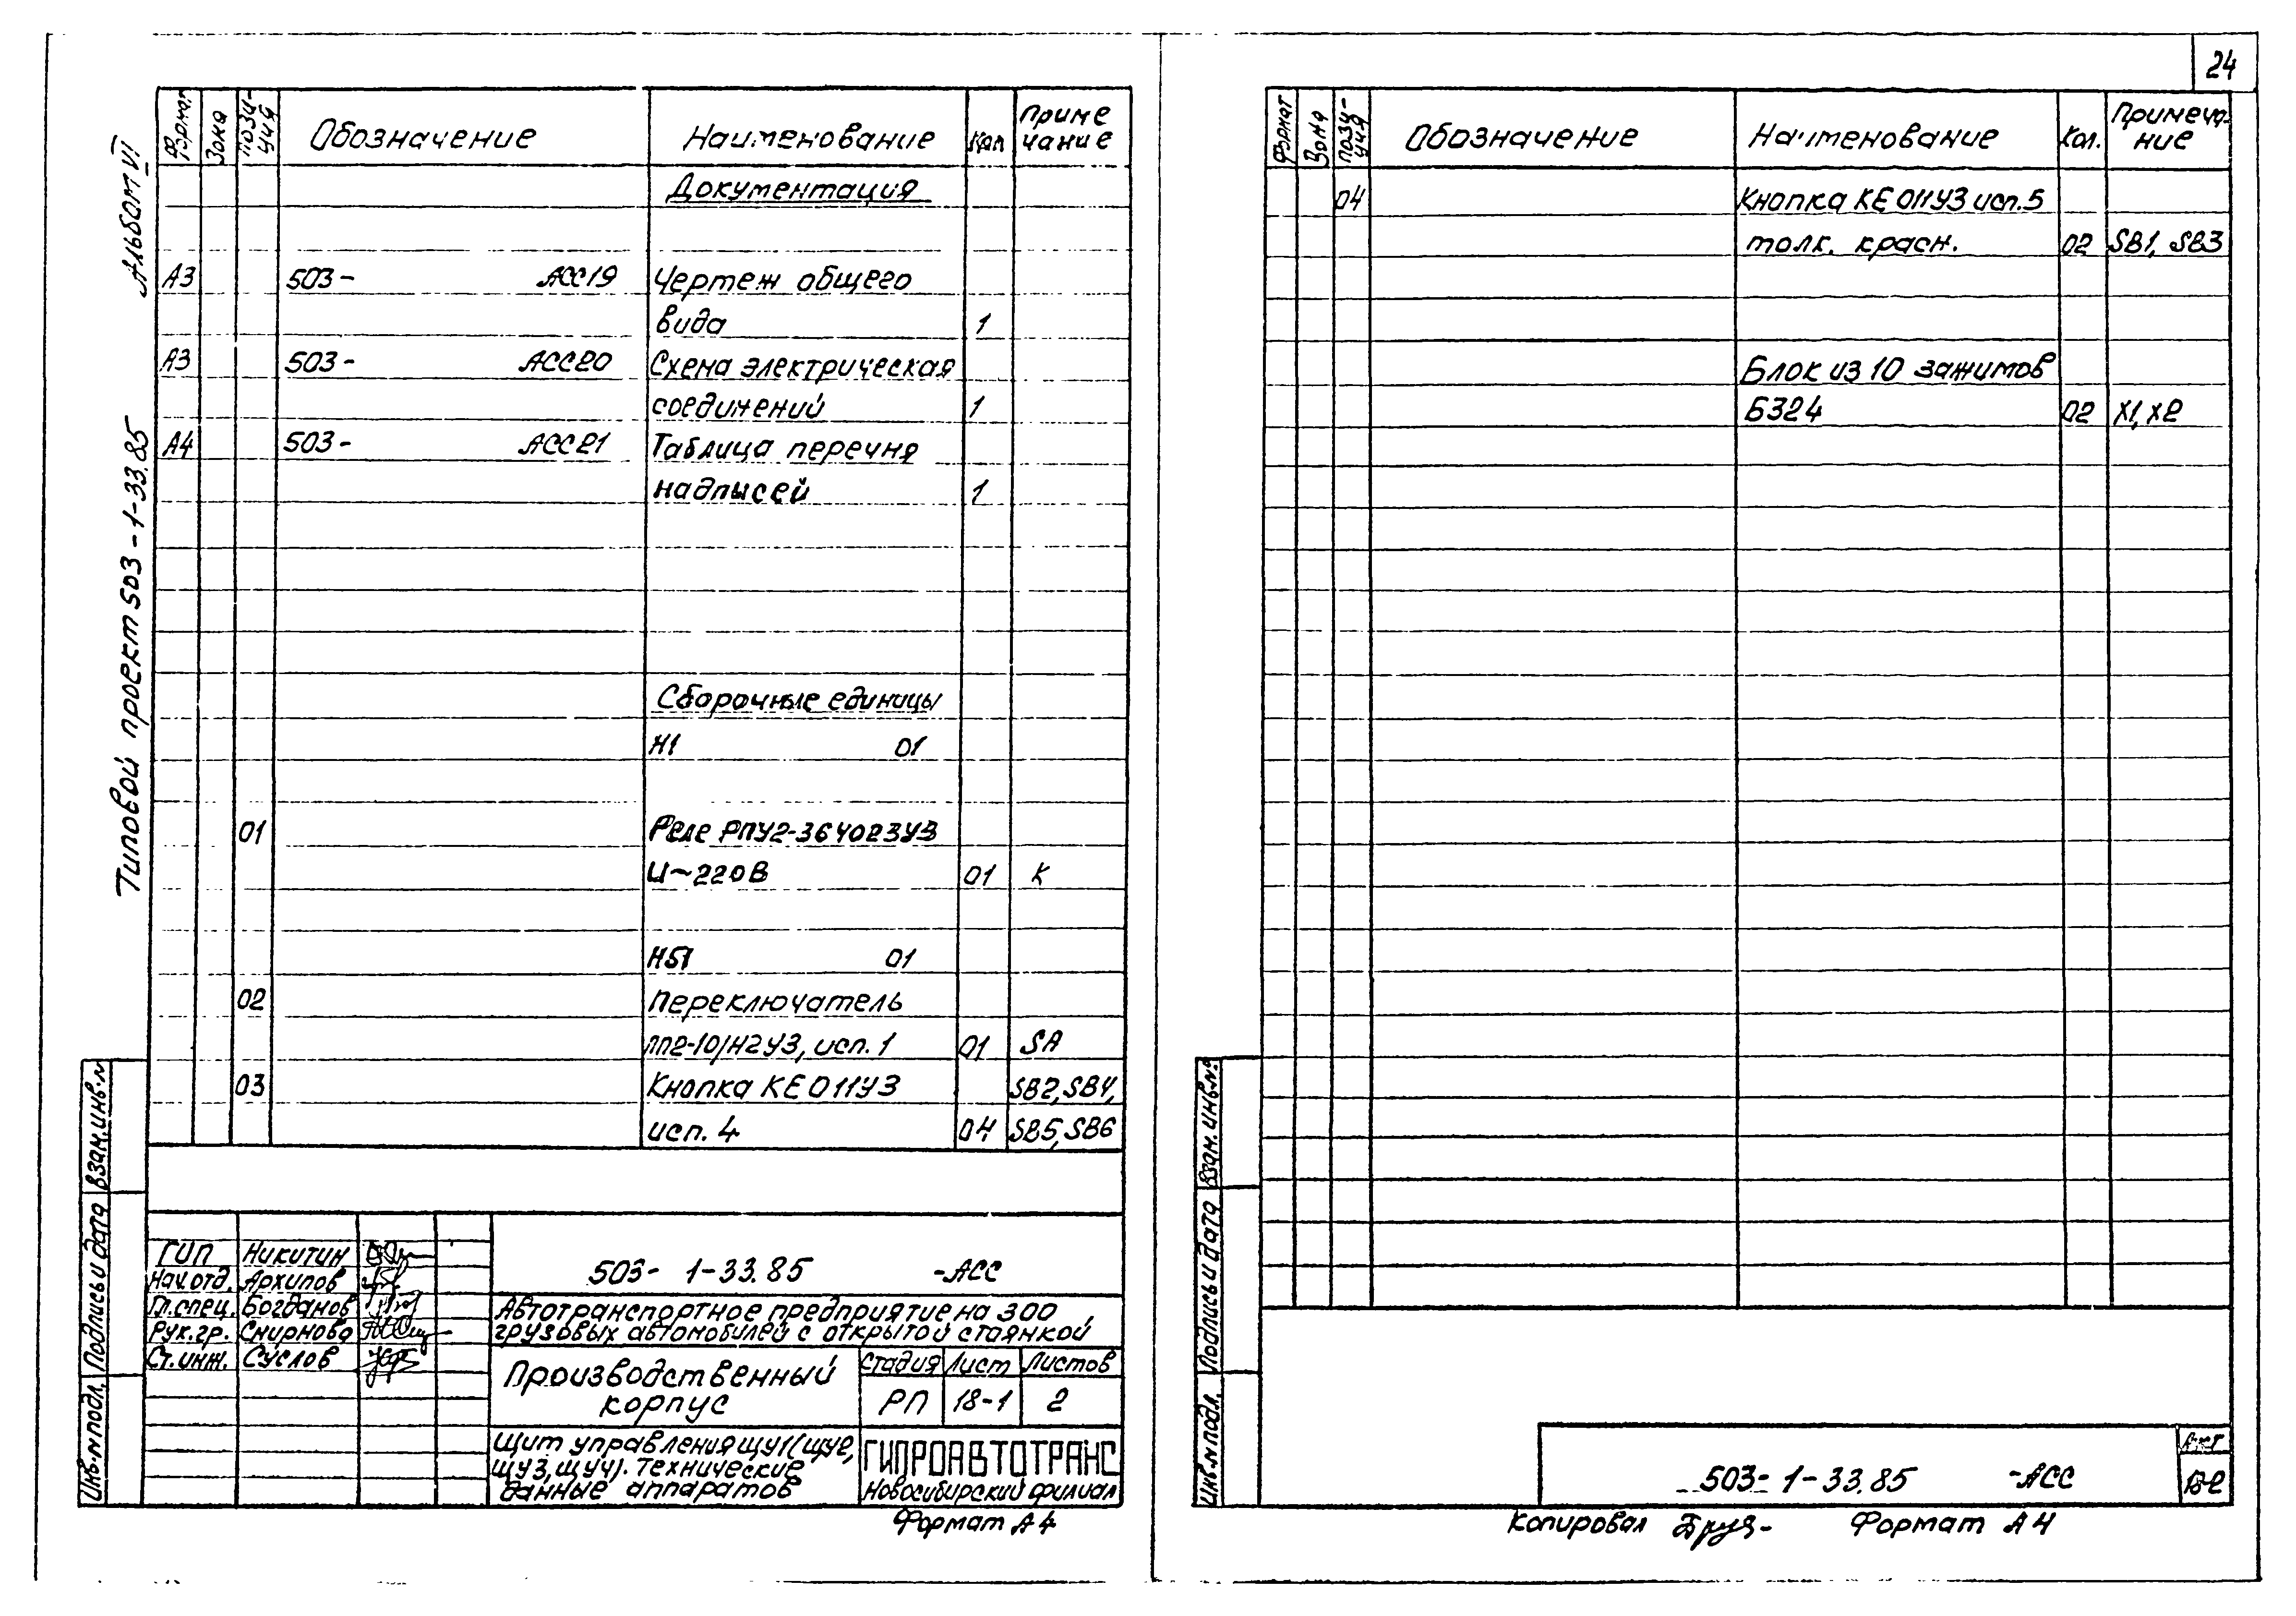 24
Альбом VI
Типовой проект 503-1-33.85
Формат Зона Позиция Обозначение Наименование Кол Примечание
Документация
А3 503- АСС19 Чертеж общего
вида 1
А3 503- АСС20 Схема электрическая
соединений 1
А4 503- АСС21 Таблица перечня
надписей 1
Сборочные единицы
Н1 01
01 Реле РПУ2-364023У3
U~220В 01 К
Н51 01
02 Переключатель
ПП2-10/Н2У3, исп. 1 01 SA
03 Кнопка КЕ011У3 SB2, SB4,
исп. 4 04 SB5, SB6
Взам. инв. №
Подпись и дата
Инв. № подл.
ГИП Никитин
Нач. отд. Архипов
Гл. спец. Богданов
Рук. гр. Смирнова
Ст. инж. Суслов
503- 1-33.85 -АСС
Автотранспортное предприятие на 300
грузовых автомобилей с открытой стоянкой
Производственный
корпус
Стадия Лист Листов
РП 18-1 2
Щит управления ЩУ1 (ЩУ2,
ЩУ3, ЩУ4). Технические
данные аппаратов
ГИПРОАВТОТРАНС
Новосибирский филиал
Формат А4
Формат Зона Позиция Обозначение Наименование Кол. Примечание
04 Кнопка КЕ011У3 исп. 5
толк. красн. 02 SB1, SB3
Блок из 10 зажимов
Б324 02 X1, X2
Взам. инв. №
Подпись и дата
Инв. № подл.
503- 1-33.85 -АСС
Лист
18-2
Копировал Формат А4